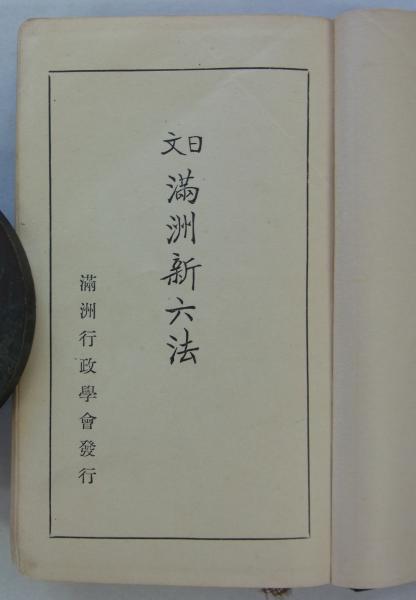 日文
滿洲新六法
滿洲行政學會發行